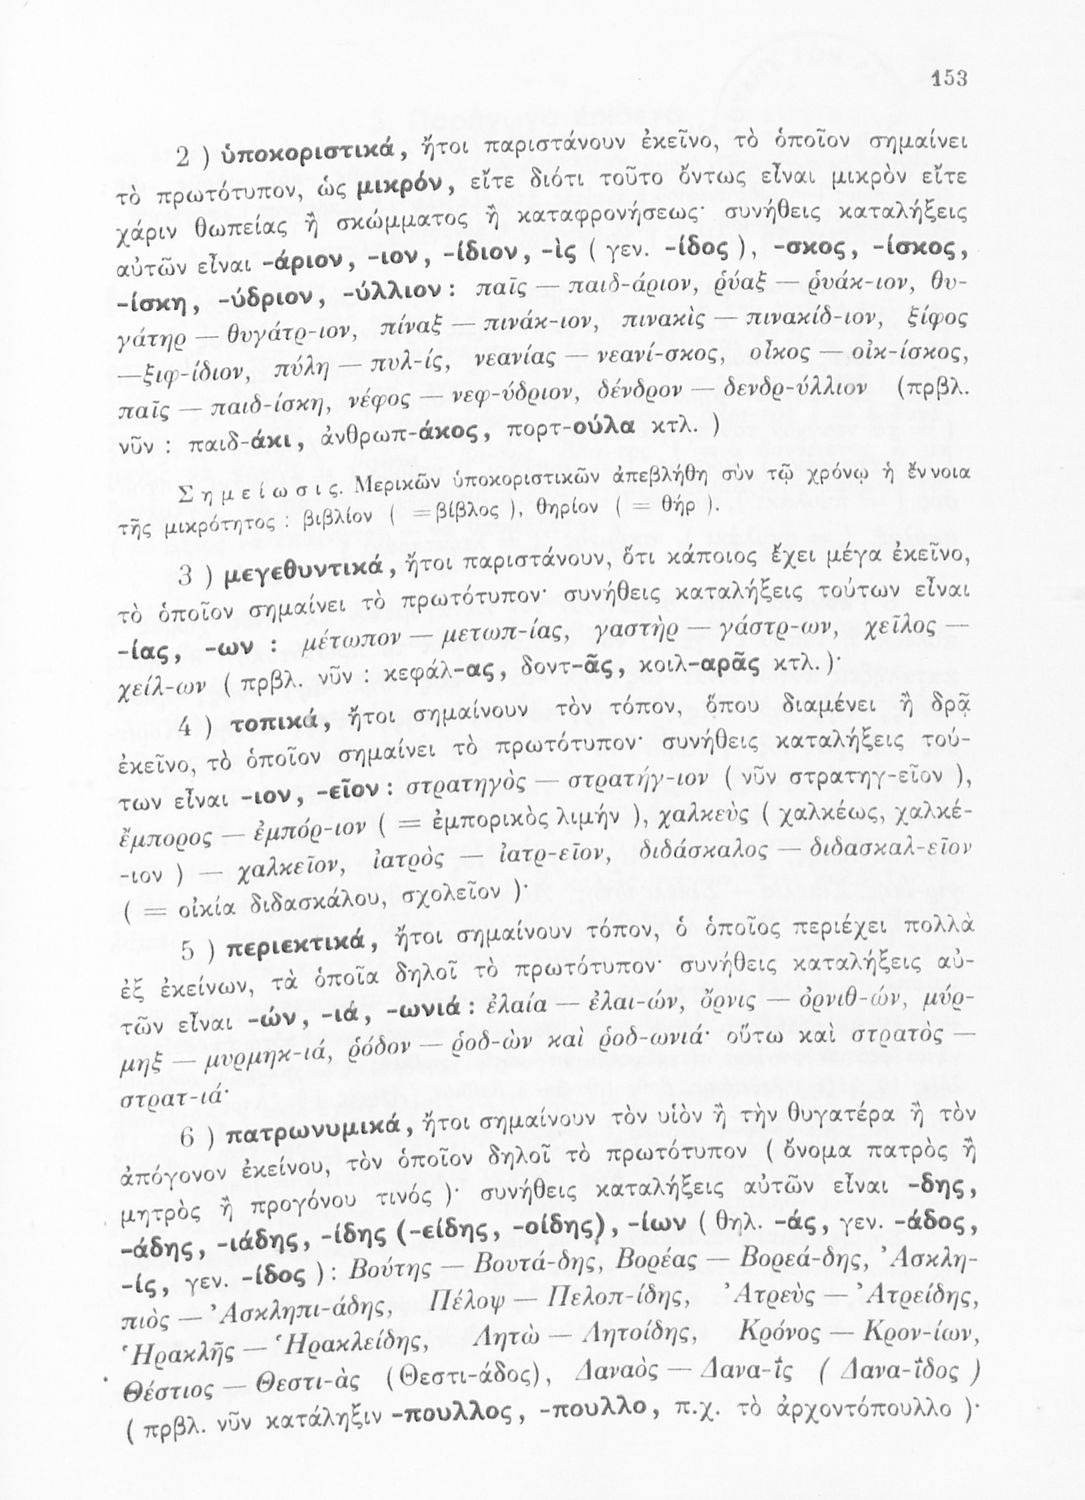 153
2 ) ὑποκοριστικά, ἤτοι παριστάνουν ἐκεῖνο, τὸ ὁποῖον σημαίνει
τὸ πρωτότυπον, ὡς μικρόν, εἴτε διότι τοῦτο ὄντως εἶναι μικρὸν εἴτε
χάριν θωπείας ἢ σκώμματος ἢ καταφρονήσεως· συνήθεις καταλήξεις
αὐτῶν εἶναι -άριον, -ιον, -ίδιον, -ὶς ( γεν. -ίδος ), -σκος, -ίσκος,
-ίσκη, -ύδριον, -ύλλιον : παῖς — παιδ-άριον, ῥύαξ — ῥυάκ-ιον, θυ-
γάτηρ — θυγάτρ-ιον, πίναξ — πινάκ-ιον, πινακὶς — πινακίδ-ιον, ξίφος
—ξιφ-ίδιον, πύλη — πυλ-ίς, νεανίας — νεανί-σκος, οἶκος — οἰκ-ίσκος,
παῖς — παιδ-ίσκη, νέφος — νεφ-ύδριον, δένδρον — δενδρ-ύλλιον (πρβλ.
νῦν : παιδ-άκι, ἀνθρωπ-άκος, πορτ-ούλα κτλ. )
Σημείωσις. Μερικῶν ὑποκοριστικῶν ἀπεβλήθη σὺν τῷ χρόνῳ ἡ ἔννοια
τῆς μικρότητος : βιβλίον ( =βίβλος ), θηρίον ( = θήρ ).
3 ) μεγεθυντικά, ἤτοι παριστάνουν, ὅτι κάποιος ἔχει μέγα ἐκεῖνο,
τὸ ὁποῖον σημαίνει τὸ πρωτότυπον· συνήθεις καταλήξεις τούτων εἶναι
-ίας, -ων : μέτωπον — μετωπ-ίας, γαστὴρ — γάστρ-ων, χεῖλος —
χείλ-ων ( πρβλ. νῦν : κεφάλ-ας, δοντ-ᾶς, κοιλ-αρᾶς κτλ. )·
4 ) τοπικά, ἤτοι σημαίνουν τὸν τόπον, ὅπου διαμένει ἢ δρᾷ
ἐκεῖνο, τὸ ὁποῖον σημαίνει τὸ πρωτότυπον· συνήθεις καταλήξεις τού-
των εἶναι -ιον, -εῖον : στρατηγὸς — στρατήγ-ιον ( νῦν στρατηγ-εῖον ),
ἔμπορος — ἐμπόρ-ιον ( = ἐμπορικὸς λιμήν ), χαλκεὺς ( χαλκέως, χαλκέ-
-ιον ) — χαλκεῖον, ἰατρὸς — ἰατρ-εῖον, διδάσκαλος — διδασκαλ-εῖον
( = οἰκία διδασκάλου, σχολεῖον )·
5 ) περιεκτικά, ἤτοι σημαίνουν τόπον, ὁ ὁποῖος περιέχει πολλὰ
ἐξ ἐκείνων, τὰ ὁποῖα δηλοῖ τὸ πρωτότυπον· συνήθεις καταλήξεις αὐ-
τῶν εἶναι -ών, -ιά, -ωνιά : ἐλαία — ἐλαι-ών, ὄρνις — ὀρνιθ-ών, μύρ-
μηξ — μυρμηκ-ιά, ῥόδον — ῥοδ-ὼν καὶ ῥοδ-ωνιά· οὕτω καὶ στρατὸς —
στρατ-ιά·
6 ) πατρωνυμικά, ἤτοι σημαίνουν τὸν υἱὸν ἢ τὴν θυγατέρα ἢ τὸν
ἀπόγονον ἐκείνου, τὸν ὁποῖον δηλοῖ τὸ πρωτότυπον ( ὄνομα πατρὸς ἢ
μητρὸς ἢ προγόνου τινός )· συνήθεις καταλήξεις αὐτῶν εἶναι -δης,
-άδης, -ιάδης, -ίδης (-είδης, -οίδης), -ίων ( θηλ. -άς, γεν. -άδος,
-ίς, γεν. -ίδος ) : Βούτης — Βουτά-δης, Βορέας — Βορεά-δης, Ἀσκλη-
πιὸς — Ἀσκληπι-άδης, Πέλοψ — Πελοπ-ίδης, Ἀτρεὺς — Ἀτρείδης,
Ἡρακλῆς — Ἡρακλείδης, Λητὼ — Λητοίδης, Κρόνος — Κρον-ίων,
Θέστιος — Θεστι-ὰς (Θεστι-άδος), Δαναὸς — Δανα-ῒς ( Δανα-ΐδος )
( πρβλ. νῦν κατάληξιν -πουλλος, -πουλλο, π.χ. τὸ ἀρχοντόπουλλο )·